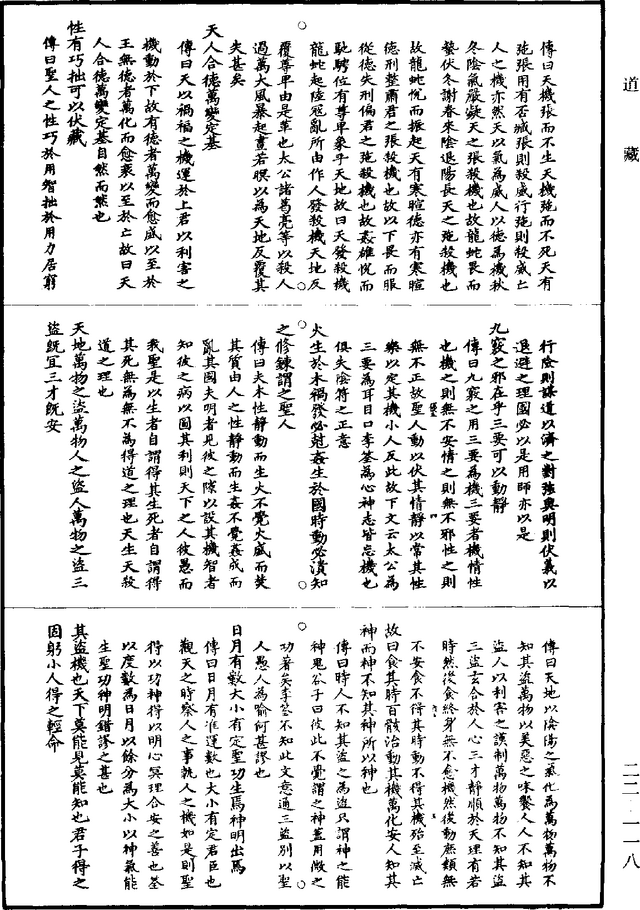 道藏
傳曰天機張而不生天機弛而不死天有
弛張用有否臧張則殺威行弛則殺威亡
人之機亦然天以氣為威人以德為機秋
冬陰氣嚴凝天之張殺機也故龍蛇畏而
蟄伏冬謝春來陰退陽長天之弛殺機也
故龍蛇悅而振起天有寒暄德亦有寒暄
德刑整肅君之張殺機也故以下畏而服
從德失刑偏君之弛殺機也故姦雄悅而
馳騁位有尊卑象乎天地故曰天發殺機
龍蛇起陸寇亂所由作人發殺機天地反
覆尊卑由是革也太公諸葛亮等以殺人
過萬大風暴起晝若暝以為天地反覆其
失甚矣
天人合德萬變定基
傳曰天以禍福之機運於上君以利害之
機動於下故有德者萬變而愈盛以至於
王無德者萬化而愈衰以至於亡故曰天
人合德萬變定基自然而然也
性有巧拙可以伏藏
傳曰聖人之性巧於用智拙於用力居窮
行險則謀道以濟之對強與明則伏義以
退避之理國必以是用師亦以是
九竅之邪在乎三要可以動靜
傳曰九竅之用三要為機三要者機情性
也機之則無不安情之則無不邪性之則
無不正故聖人動以伏其情靜以常其性
樂以定其機小人反此故下文云太公為
三要為耳目口李筌為心神志皆忘機也
俱失陰符之正意
火生於木禍發必尅姦生於國時動必潰知
之修鍊謂之聖人
傳曰夫木性靜動而生火不覺火盛而焚
其質由人之性靜動而生姦不覺姦成而
亂其國夫明者見彼之隙以設其機智者
知彼之病以圓其利則天下之人彼愚而
我聖是以生者自謂得其生死者自謂得
其死無為無不為得道之理也天生天殺
道之理也
天地萬物之盜萬物人之盜人萬物之盜三
盜既宜三才既安
傳曰天地以陰陽之氣化為萬物萬物不
知其盜萬物以美惡之味饗人人不知其
盜人以利害之謨制萬物萬物不知其盜
三盜玄合於人心三才靜順於天理有若
時然後食終身無不愈機然後動庶類無
不安食不得其時動不得其機殆至滅亡
故曰食其時百骸治動其機萬化安人知其
神而神不知其神所以神也
傳曰時人不知其盜之為盜只謂神之能
神鬼谷子曰彼此不覺謂之神蓋用微之
功著矣李筌不知此文意通三盜別以聖
人愚人為喻何甚謬也
日月有數大小有定聖功生焉神明出焉
傳曰日月有准運數也大小有定君臣也
觀天之時察人之事執人之機如是則聖
得以功神得以明心冥理合安之善也筌
以度數為日月以餘分為大小以神氣能
生聖功神明錯謬之甚也
其盜機也天下莫能見莫能知也君子得之
固躬小人得之輕命
二二‧一一八